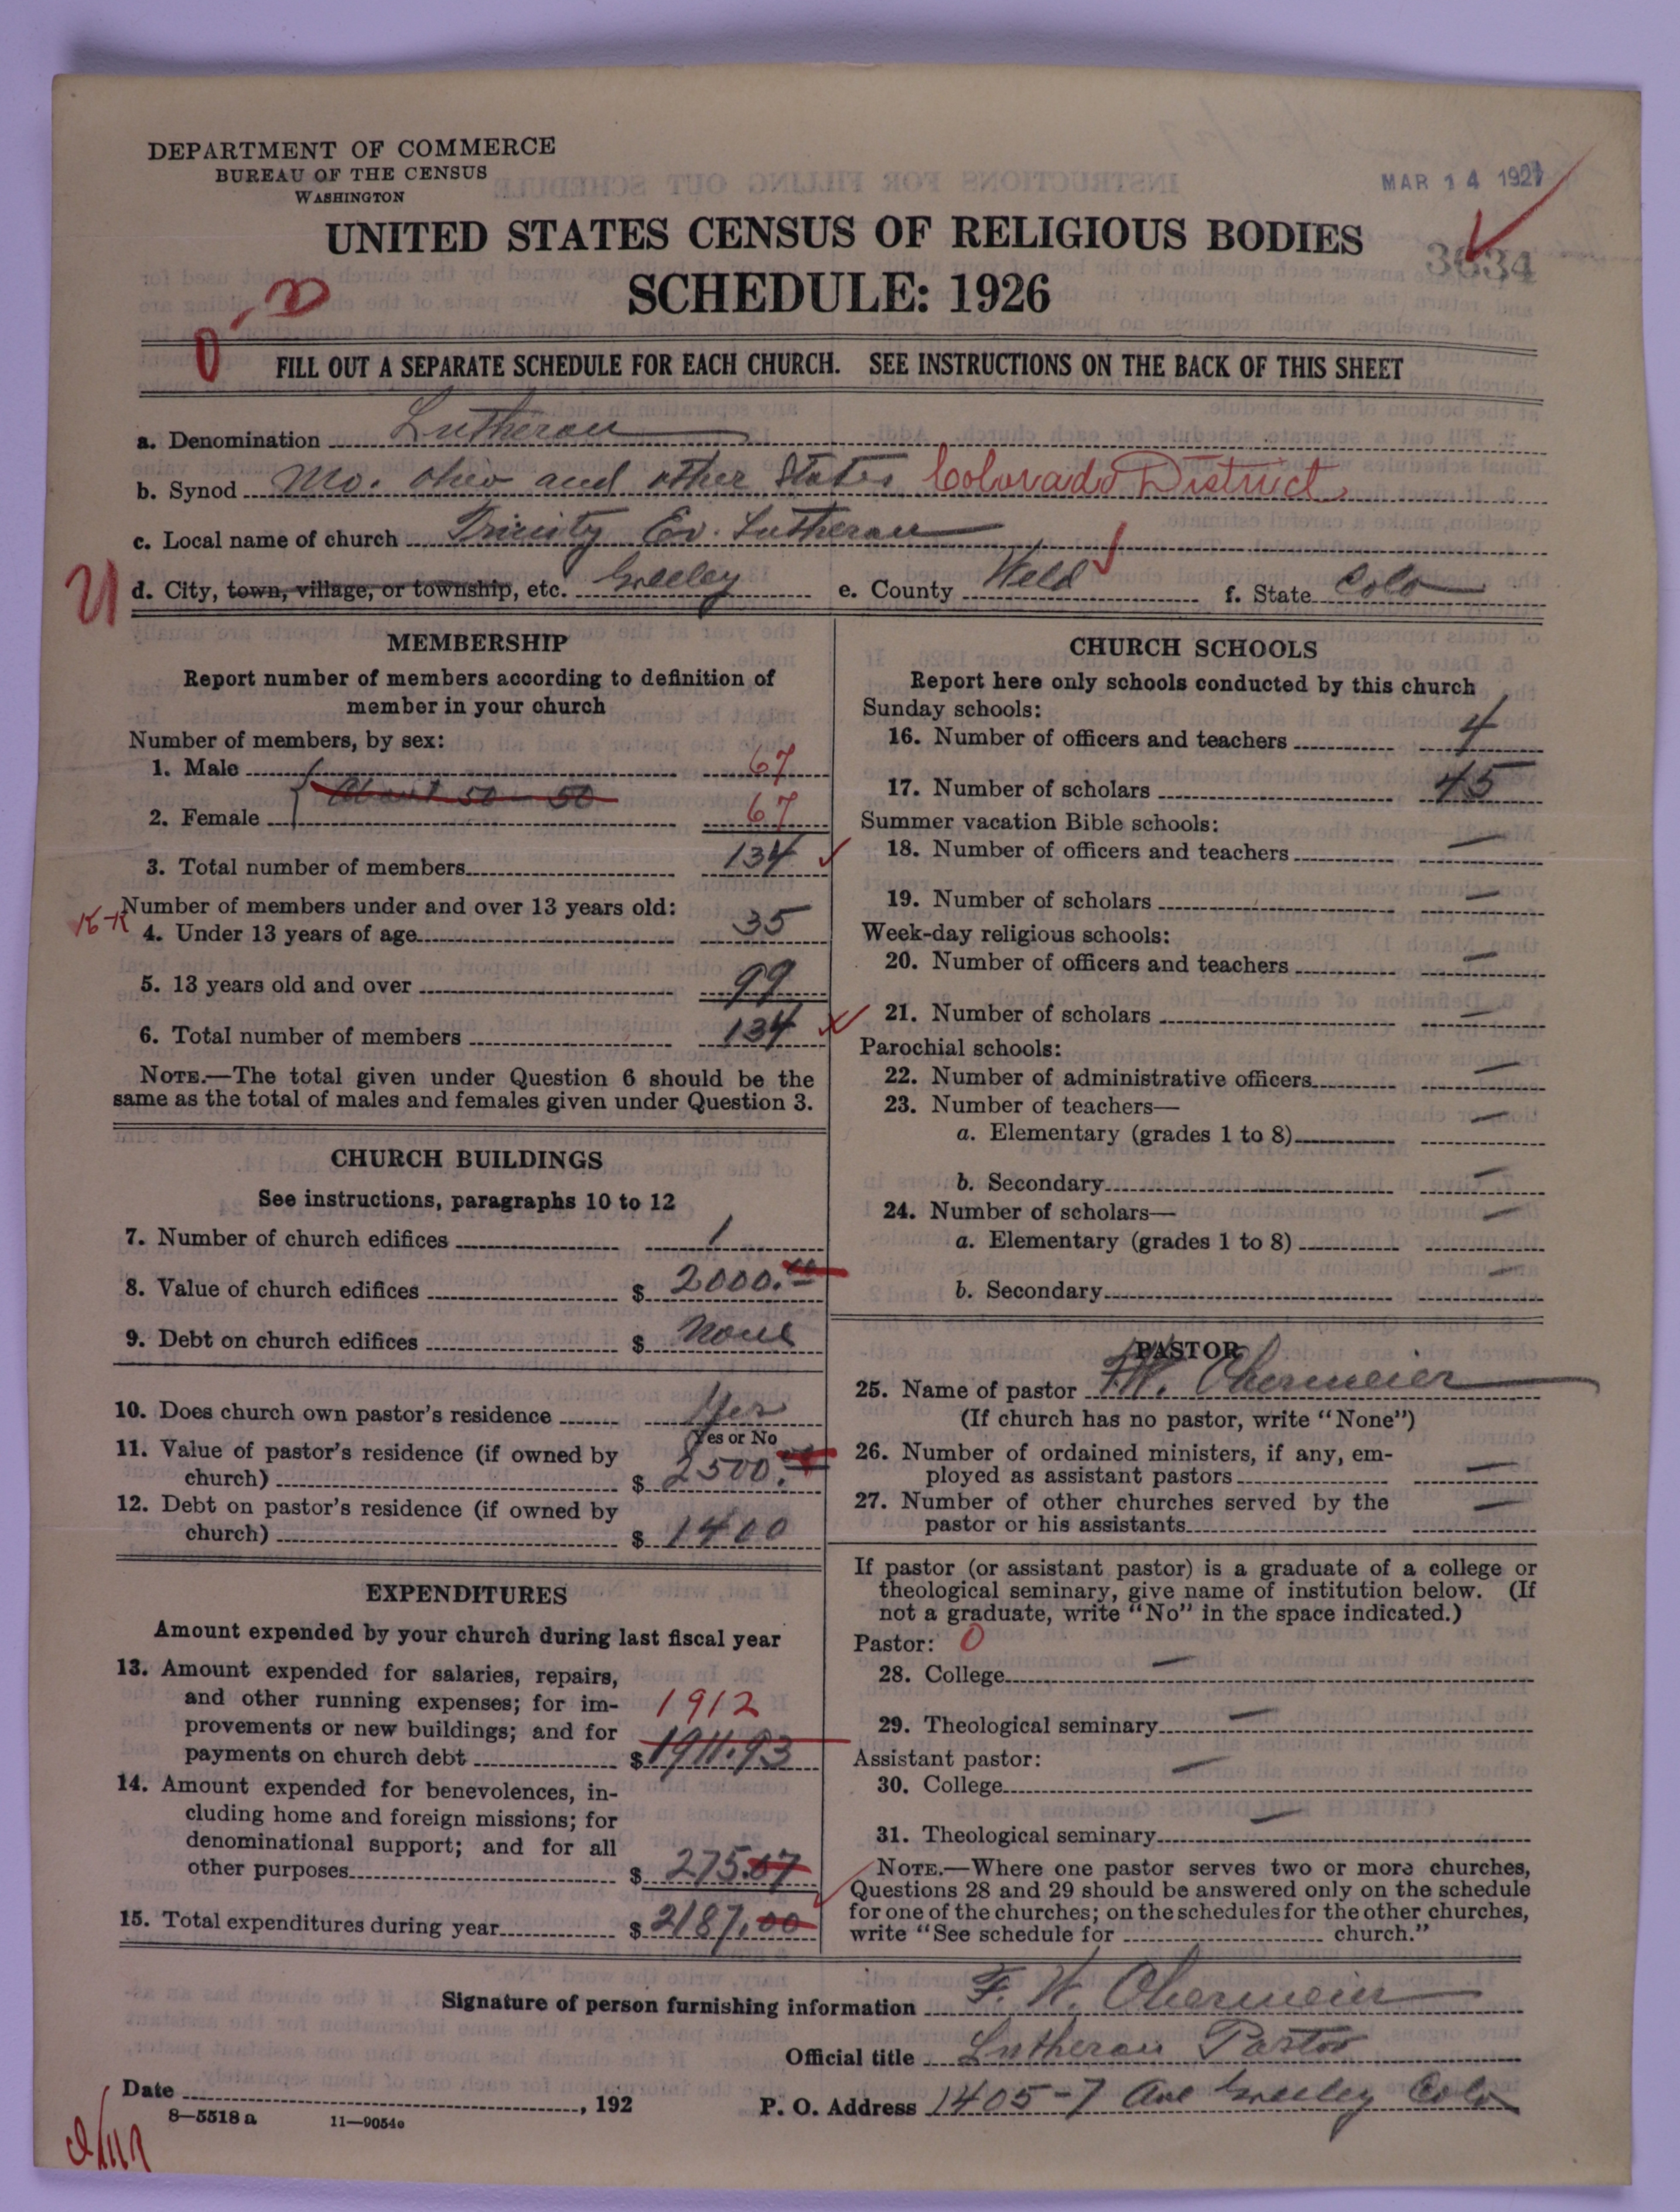 DEPARTMENT OF COMMERCE
BUREAU OF THE CENSUS
WASHINGTON
MAR 14 1927
UNITED STATES CENSUS OF RELIGIOUS BODIES
SCHEDULE: 1926
3634
FILL OUT A SEPARATE SCHEDULE FOR EACH CHURCH. SEE INSTRUCTIONS ON THE BACK OF THIS SHEET
a. Denomination Lutheran
b. Synod Mo. Ohio and other States Colorado District
c. Local name of church Trinity Ev. Lutheran
d. City, town, village, or township, etc. Greeley e. County Weld f. State Colo
MEMBERSHIP
Report number of members according to definition of
member in your church
Number of members, by sex:
1. Male 67
About 50-50
2. Female 67
3. Total number of members 134
Number of members under and over 13 years old:
4. Under 13 years of age 35
5. 13 years old and over 99
6. Total number of members 134
NOTE.—The total given under Question 6 should be the
same as the total of males and females given under Question 3.
CHURCH BUILDINGS
See instructions, paragraphs 10 to 12
7. Number of church edifices 1
8. Value of church edifices $ 2000.00
9. Debt on church edifices $ None
10. Does church own pastor's residence Yes
Yes or No
11. Value of pastor's residence (if owned by
church) $ 2500.
12. Debt on pastor's residence (if owned by
church) $ 1400
EXPENDITURES
Amount expended by your church during last fiscal year
13. Amount expended for salaries, repairs,
and other running expenses; for im-
provements or new buildings; and for
payments on church debt $ 1911.93
1912
14. Amount expended for benevolences, in-
cluding home and foreign missions; for
denominational support; and for all
other purposes $ 275.07
15. Total expenditures during year $ 2187.00
CHURCH SCHOOLS
Report here only schools conducted by this church
Sunday schools:
16. Number of officers and teachers 4
17. Number of scholars 45
Summer vacation Bible schools:
18. Number of officers and teachers —
19. Number of scholars —
Week-day religious schools:
20. Number of officers and teachers —
21. Number of scholars —
Parochial schools:
22. Number of administrative officers —
23. Number of teachers—
a. Elementary (grades 1 to 8) —
b. Secondary —
24. Number of scholars—
a. Elementary (grades 1 to 8) —
b. Secondary —
PASTOR
25. Name of pastor F.W. Obermeier
(If church has no pastor, write "None")
26. Number of ordained ministers, if any, em-
ployed as assistant pastors —
27. Number of other churches served by the
pastor or his assistants —
If pastor (or assistant pastor) is a graduate of a college or
theological seminary, give name of institution below. (If
not a graduate, write "No" in the space indicated.)
Pastor: 0
28. College —
29. Theological seminary —
Assistant pastor:
30. College —
31. Theological seminary —
NOTE.—Where one pastor serves two or more churches,
Questions 28 and 29 should be answered only on the schedule
for one of the churches; on the schedules for the other churches,
write "See schedule for church."
Signature of person furnishing information F. W. Obermeier
Official title Lutheran Pastor
Date , 192
P. O. Address 1405-7 Ave Greeley Colo
8—5518 a 11—9054e